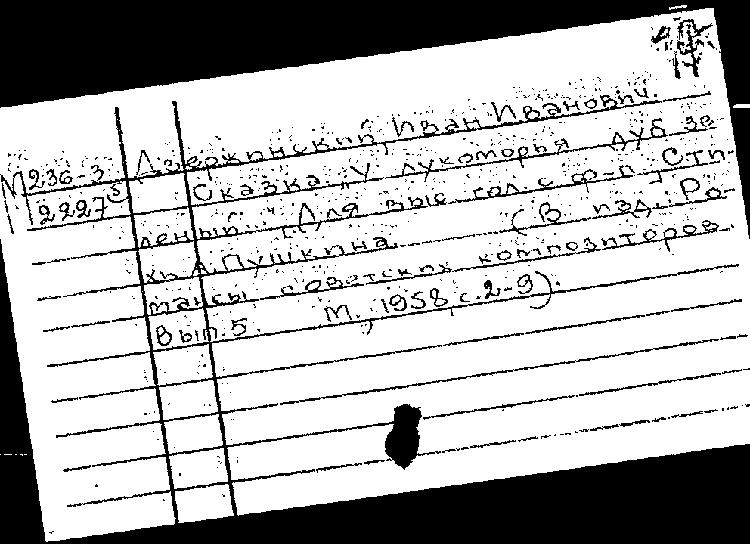 Дзержинский, Иван Иванович.
М 236-3
2227
Сказка „У лукоморья дуб зе-
леный..." [Для выс. гол. с ф-п.] Сти-
хи А. Пушкина. (В изд.: Ро-
мансы советских композиторов.
Вып. 5. М., 1958, с. 2-9).